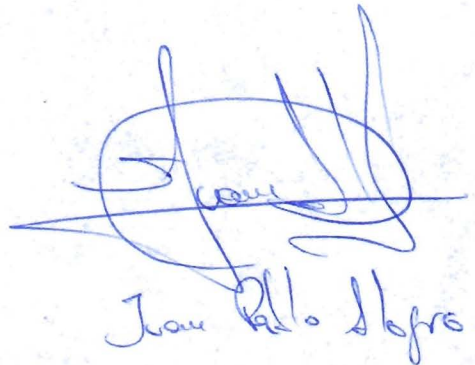 Juan
Juan Pablo Alegro